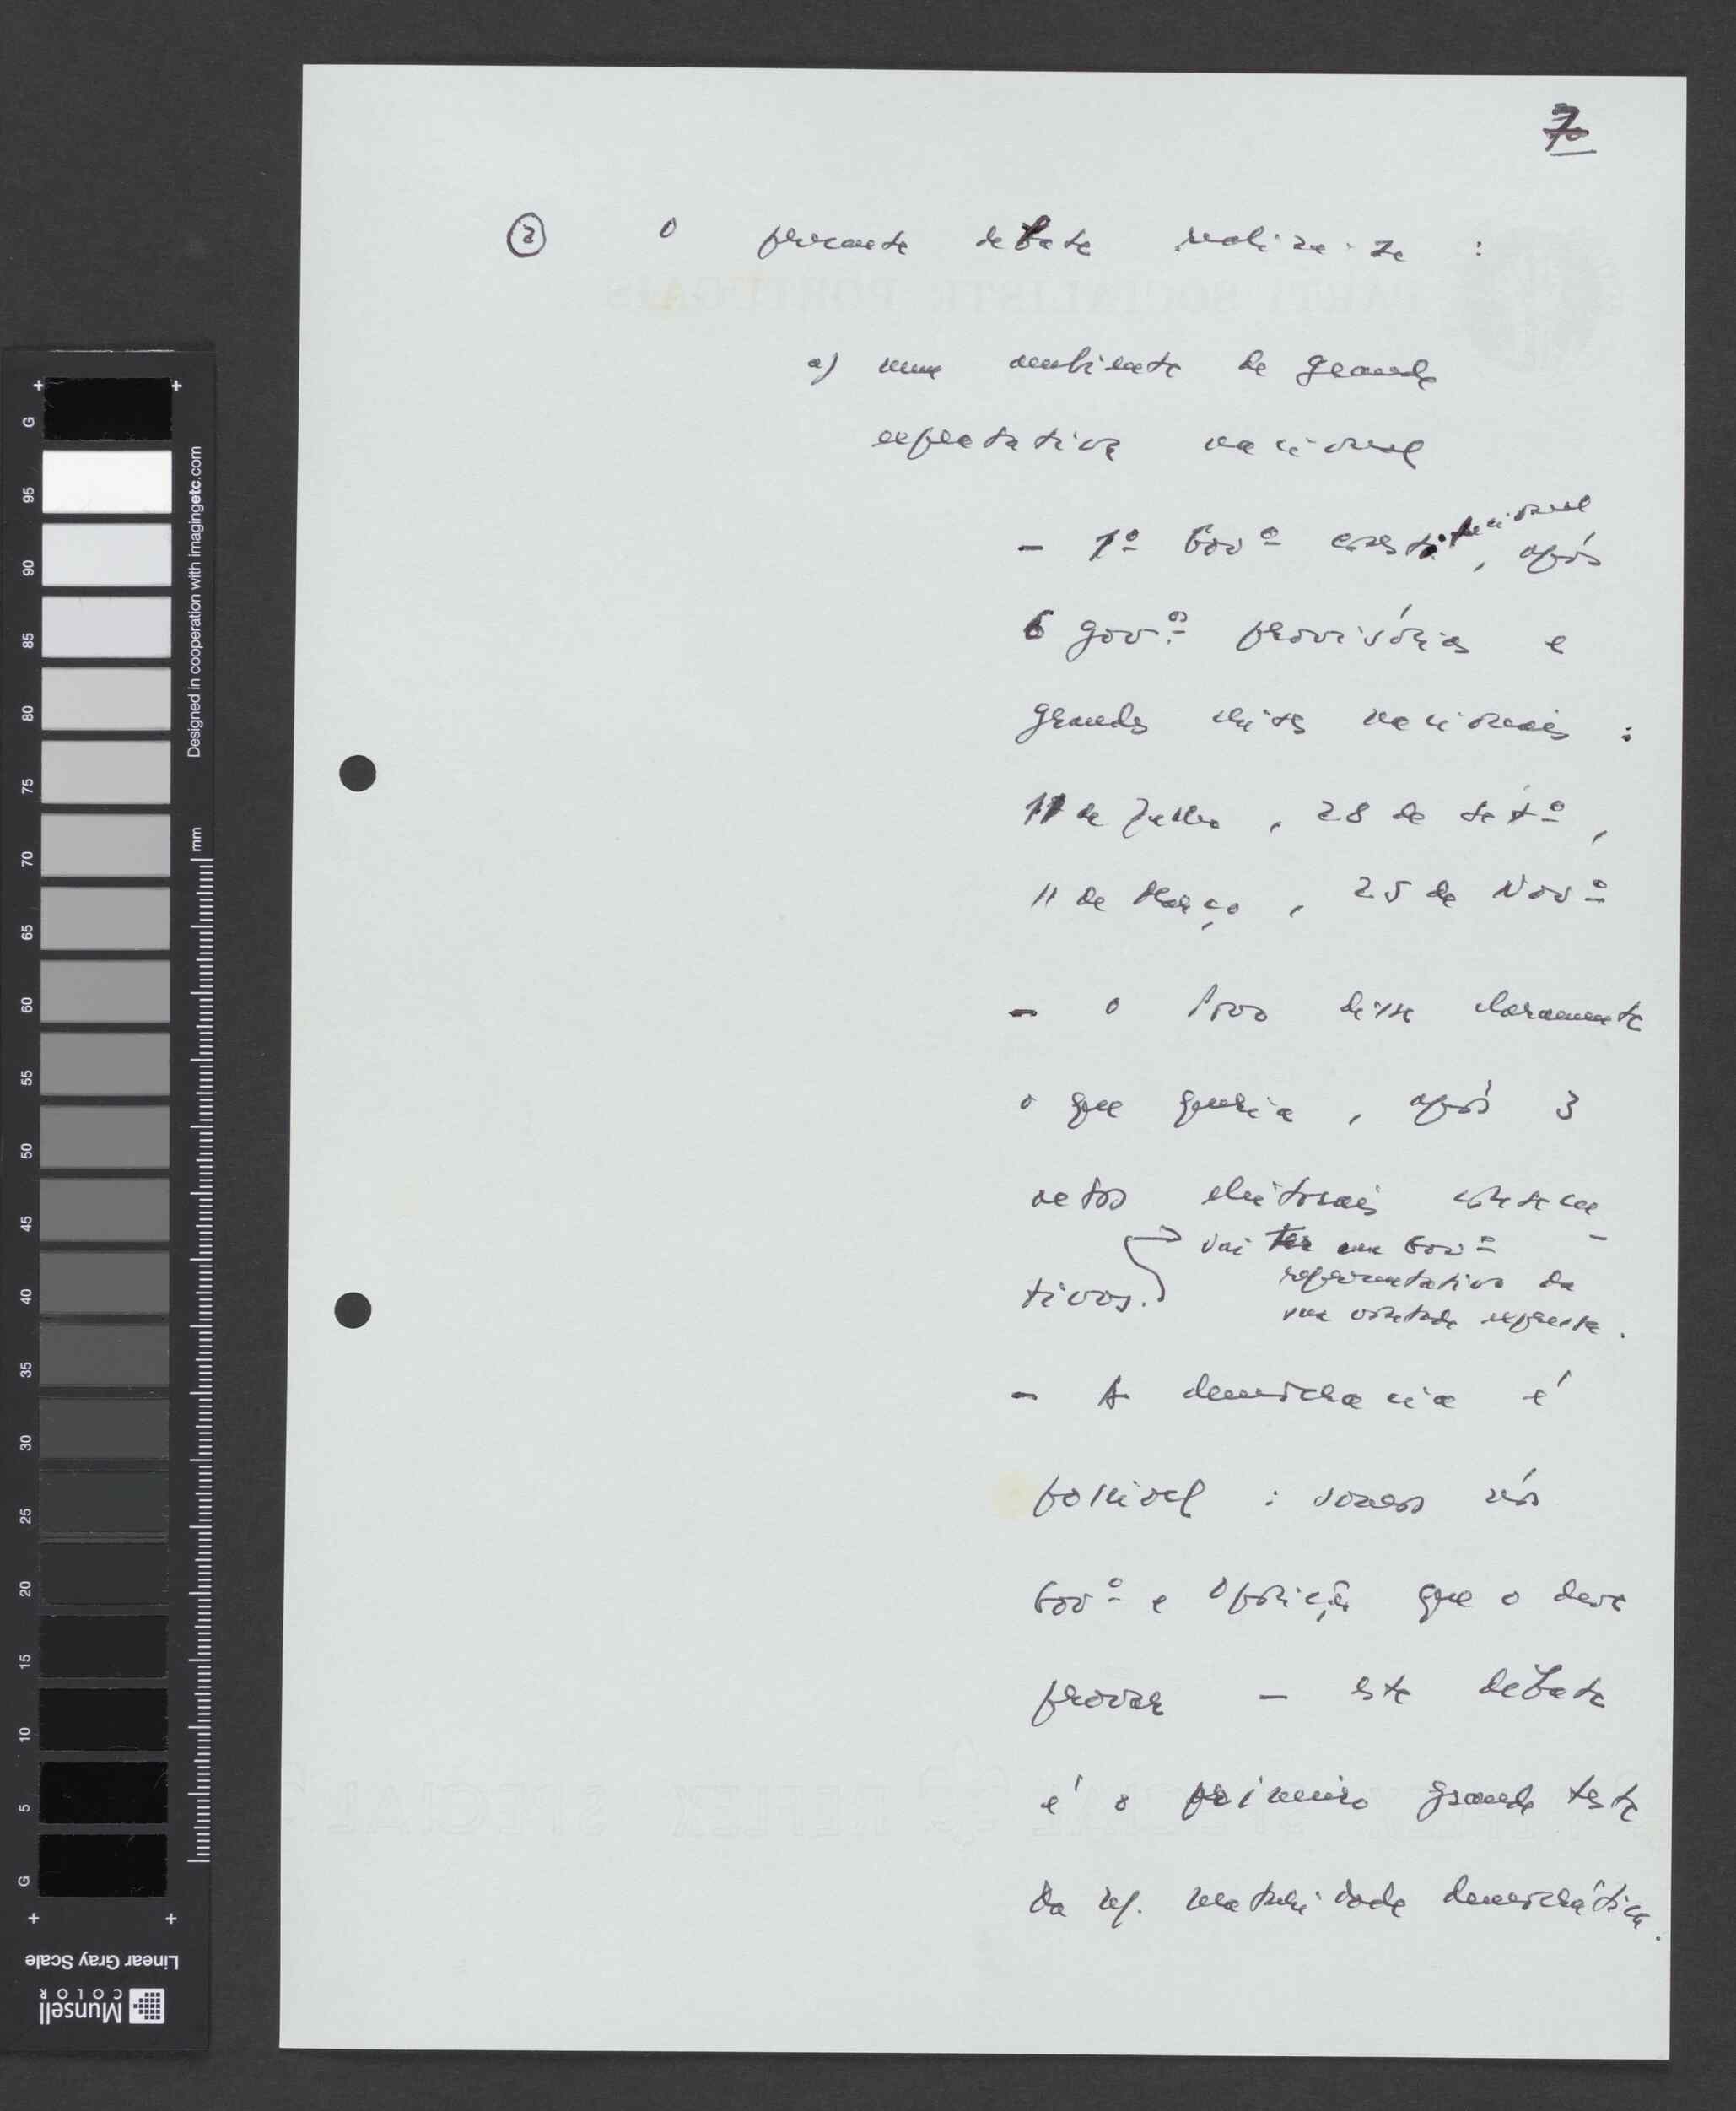 7
② O presente debate realiza-se :
a) num ambiente de grande
expectativa nacional
- 1º Govº constitucional, após
6 gov.os provisórios e
grandes crises nacionais :
11 de Julho, 28 de Setº,
11 de Março, 25 de Novº
- o Povo disse claramente
o que queria, após 3
actos eleitorais consecu-
tivos.
vai ter um Govº
representativo da
sua vontade expressa.
- A democracia é
possível : somos nós
Govº e Oposição que o deve
provar - este debate
é o primeiro grande teste
da maturidade democrática.
PARTI SOCIALISTE PORTUGAIS
SPECIAL
G
95
90
85
80
75
70
65
60
55
50
45
40
35
30
25
20
15
10
5
G
Designed in cooperation with imagingetc.com
mm
Linear Gray Scale
Munsell
COLOR